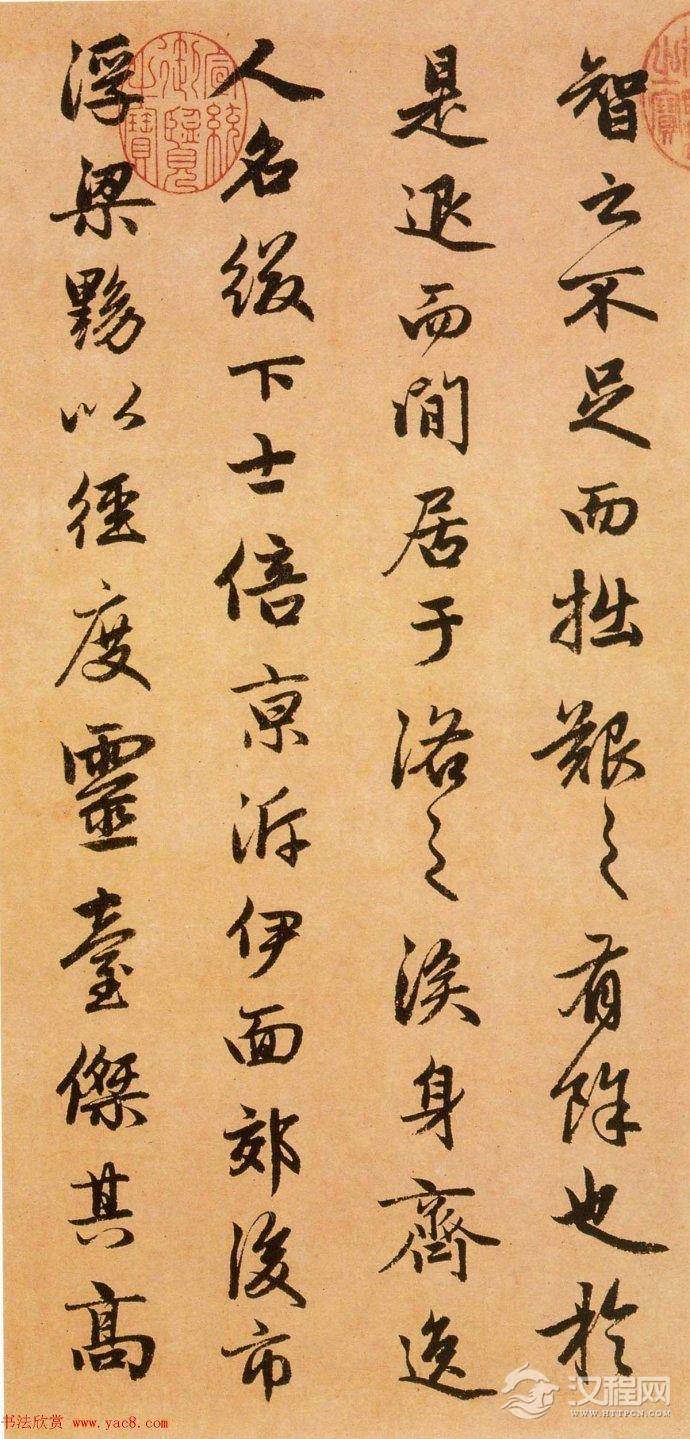 智之不足而拙艱之有餘也於
是退而閒居于洛之涘身齊逸
人名綴下士倍京泝伊面郊後市
浮梁黝以徑度靈臺傑其高
宣統御覽之寶
之寶
书法欣赏 www.yac8.com
汉程网
WWW.HTTPCN.COM